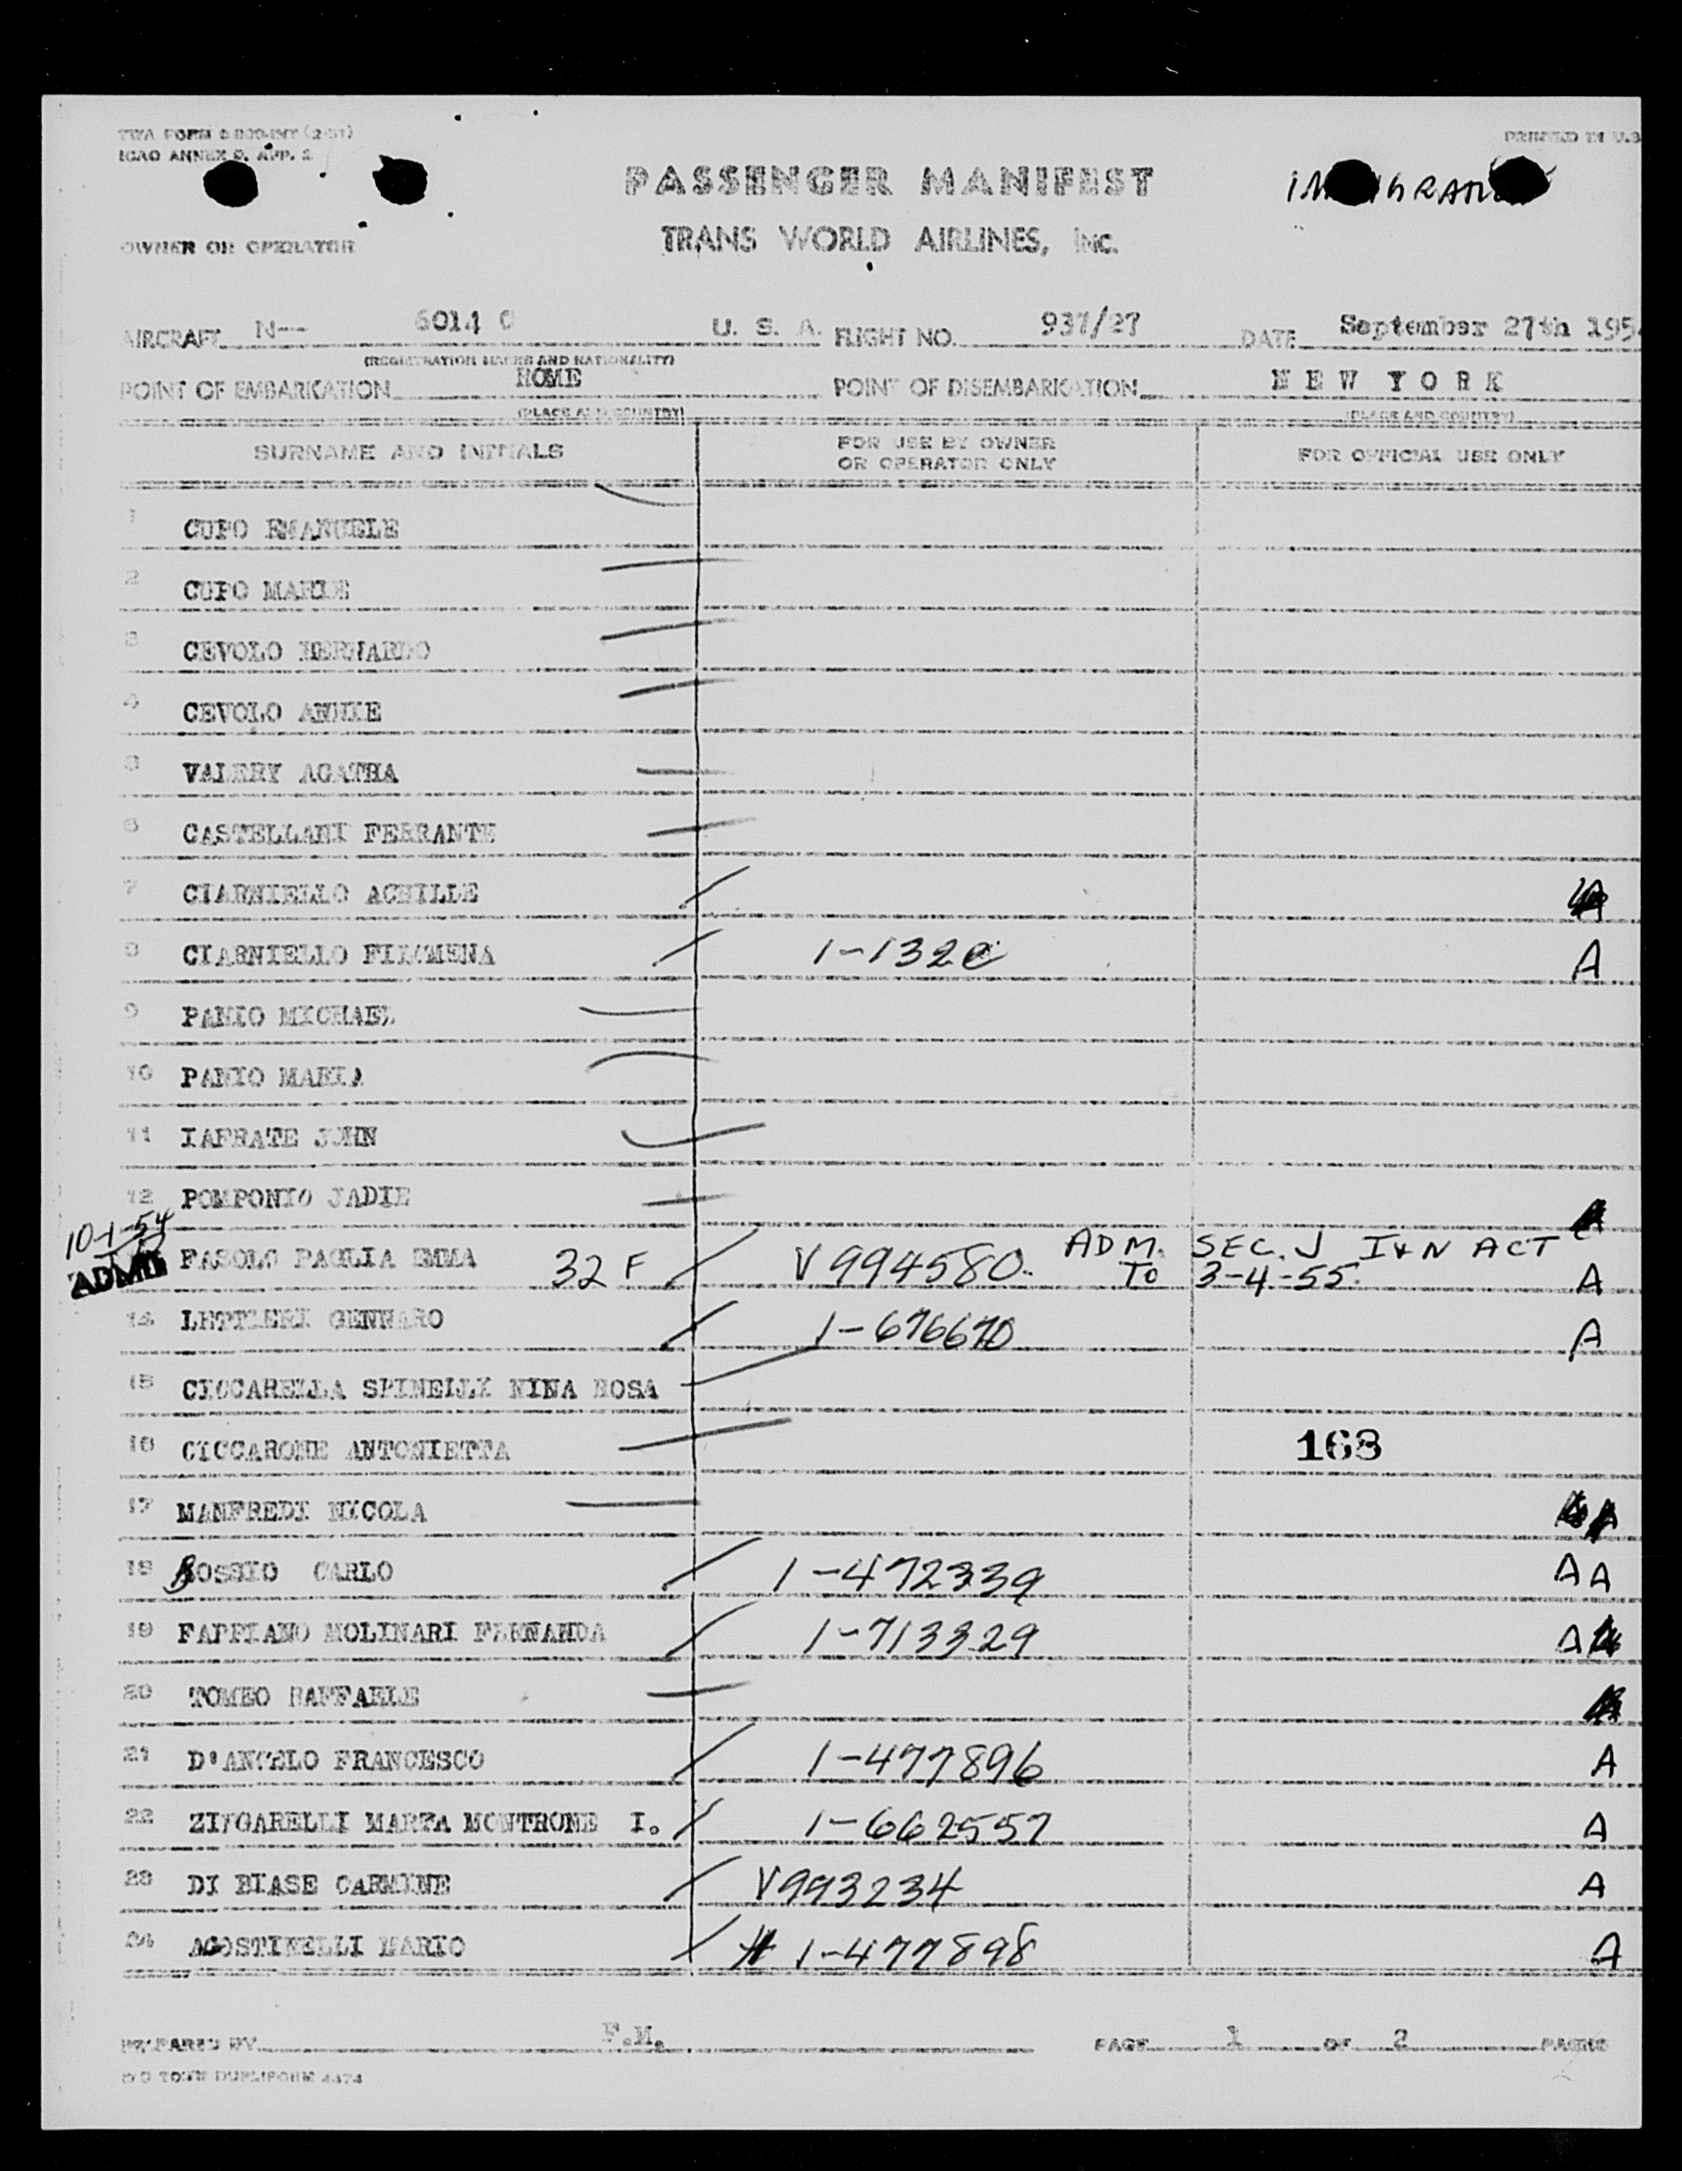 TWA FORM (2-51) PRINTED IN U.S
ICAO ANNEX 9. APP. 2
PASSENGER MANIFEST
OWNER OR OPERATOR TRANS WORLD AIRLINES, INC.
AIRCRAFT N-- 6014 C U. S. A. FLIGHT NO. 937/27 DATE September 27th 195
(REGISTRATION MARKS AND NATIONALITY)
POINT OF EMBARKATION ROME POINT OF DISEMBARKATION NEW YORK
(PLACE AND COUNTRY) (PLACE AND COUNTRY)
SURNAME AND INITIALS FOR USE BY OWNER OR OPERATOR ONLY FOR OFFICIAL USE ONLY
1 CUPO EMANUELE
2 CUPO MARIE
3 CEVOLO BERNARDO
4 CEVOLO ANNIE
5 VALERY AGATHA
6 CASTELLANI FERRANTE
7 CIARNIELLO ACHILLE
8 CIARNIELLO FILOMENA 1-132 A
9 PANIO MICHAEL
10 PANIO MARIA
11 IAFRATE JOHN
12 POMPONIO JADIE
10-1-54
ADMD FASOLO PAGLIA EMMA 32 F V994580 ADM. SEC. J I&N ACT
TO 3-4-55. A
14 LETTIERI GENNARO 1-676670 A
15 CICCARELLA SPINELLI NINA ROSA
16 CICCARONE ANTONIETTA 168
17 MANFREDI NICOLA
18 ROSSIO CARLO 1-472339 A A
19 FAPPIANO MOLINARI FERNANDA 1-713329 A
20 TOMEO RAFFAELE
21 D'ANGELO FRANCESCO 1-477896 A
22 ZINGARELLI MARTA MONTRONE I. 1-662557 A
23 DI BIASE CARMINE V993234 A
24 AGOSTINELLI MARIO 1-477898 A
PREPARED BY F.M. PAGE 1 OF 2 PAGES